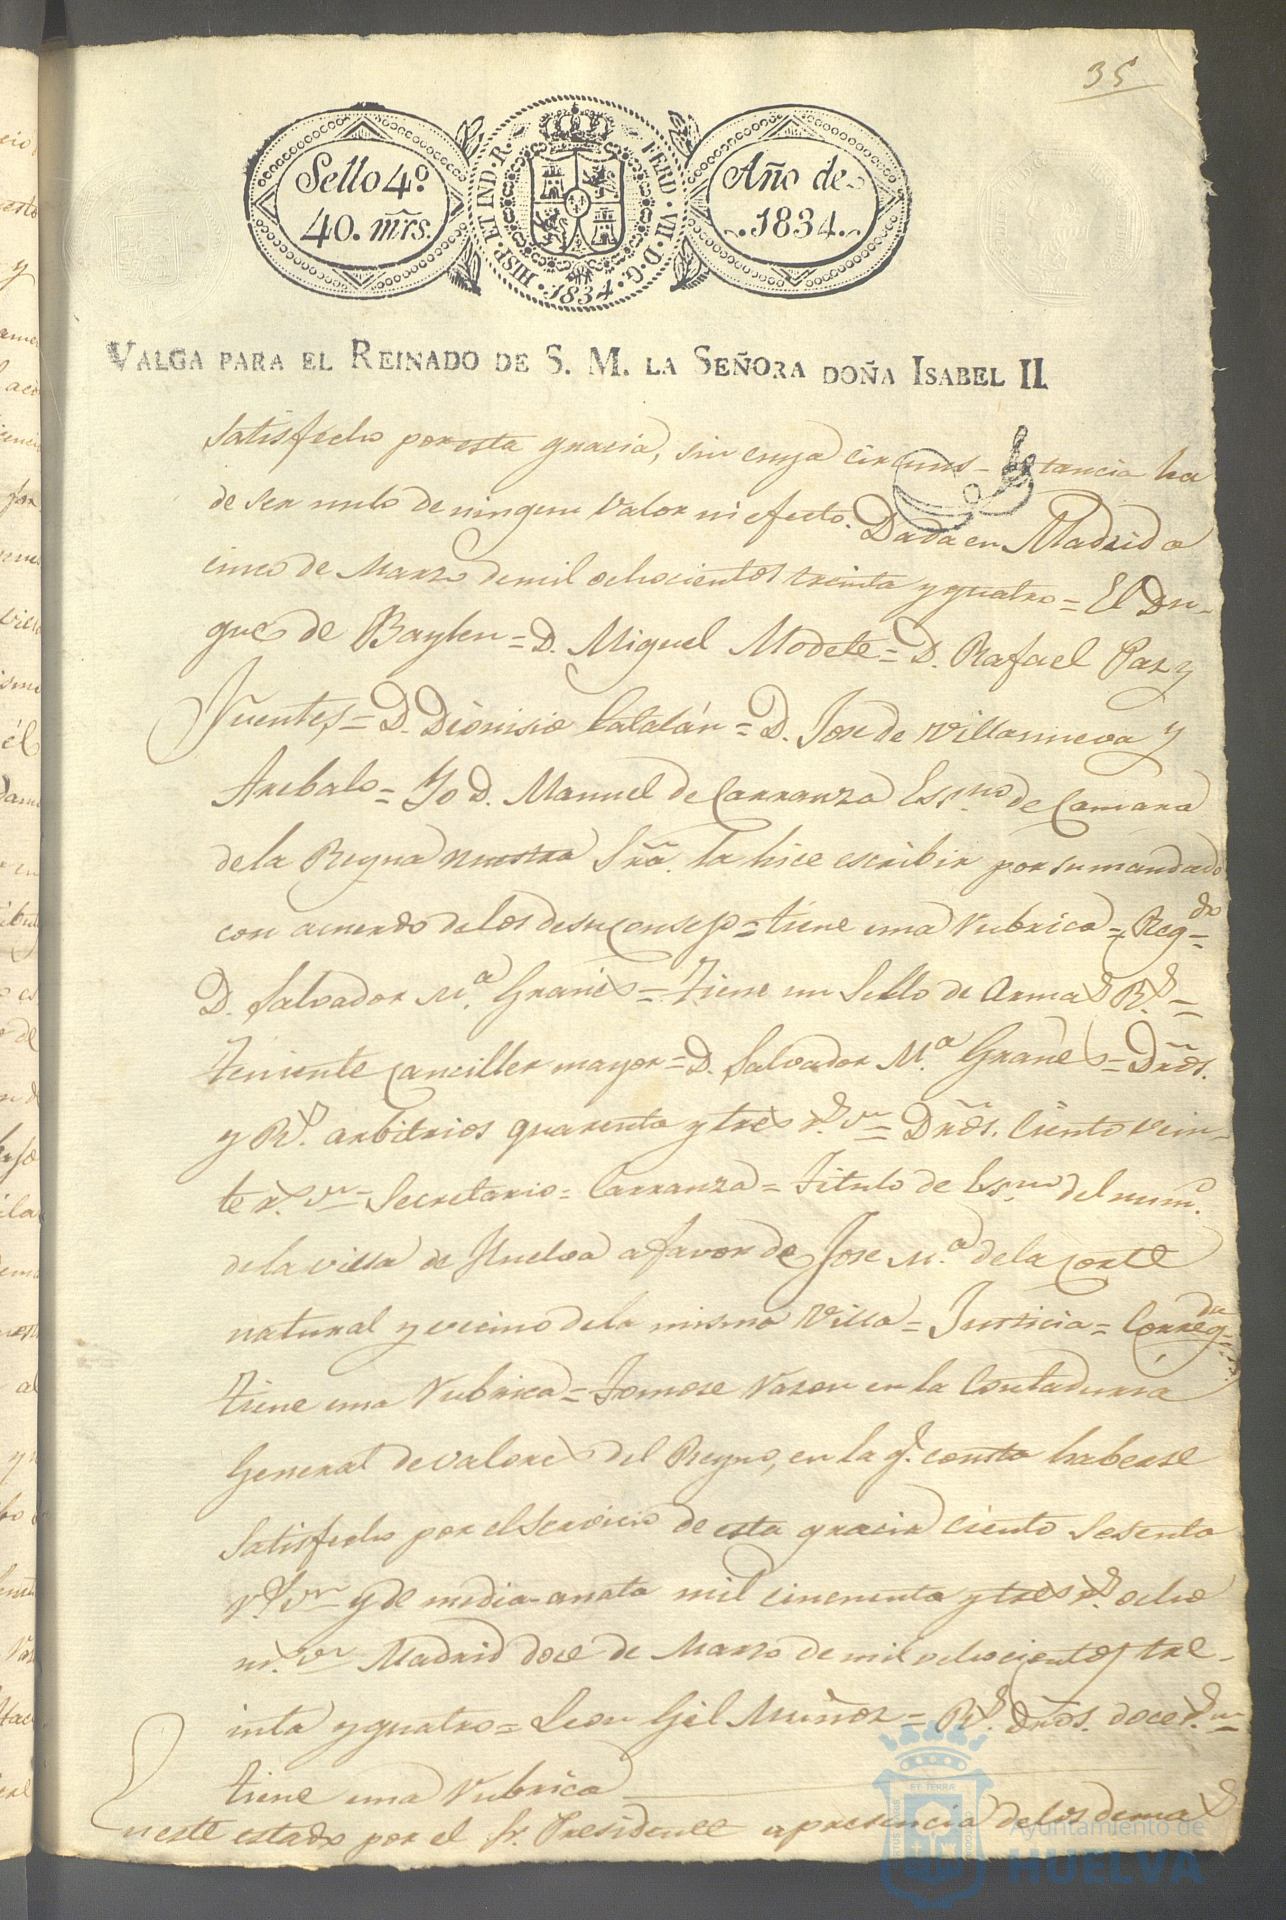 35
Sello 4º
40. mrs.
HISP. ET IND. R. FERD. VII. D. G. 1834.
Año de
1834.
VALGA PARA EL REINADO DE S. M. LA SEÑORA DOÑA ISABEL II
satisfecho por esta gracia, sin cuya circuns-tancia ha
de ser nulo de ningun valor ni efecto. Dada en Madrid a
cinco de Marzo de mil ochocientos treinta y quatro = El Du-
que de Baylen = D. Miguel Modete = D. Rafael Paz y
Fuentes = D. Dionisio Catalán = D. Jose de Villanueva y
Arebalo = Yo D. Manuel de Carranza Essno de Camara
de la Reyna nuestra Sra. la hice escribir por su mandado
con acuerdo de los de su Consejo = tiene una rubrica = Regdo =
D. Salvador Ma. Granés = Tiene un Sello de Armas Rs. =
Teniente Canciller mayor = D. Salvador Ma. Granés = Dros.
y Rs. arbitrios quarenta y tres rs. vn = Dros. Ciento vein-
te rs. vn = Secretario = Carranza = Titulo de Essno del numo.
de la villa de Huelva a favor de Jose Ma. de la Corte
natural y vecino de la misma Villa = Justicia = Corregda =
Tiene una rubrica = Tomose razon en la Contaduria
General de valores del Reyno, en la q. consta haberse
satisfecho por el servicio de esta gracia ciento sesenta
rs. vn y de media-anata mil cincuenta y tres rs. ocho
m. vn Madrid doce de Marzo de mil ochocientos tre-
inta y quatro = Leon Gil Muñoz = Rs. Dros. doce rs. vn
tiene una rubrica
n este estado por el Sr. Presidente a presencia de los demas
ET TERRÆ
Ayuntamiento de
HUELVA